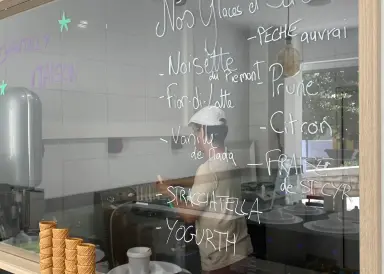 Nos Glaces et
- Noisette
du Piemont
- Fior di latte
- Vanille
de Mada
- STRACCIATELLA
- YOGURTH
- PÊCHE au vrai
- Prune
- Citron
de St CYR